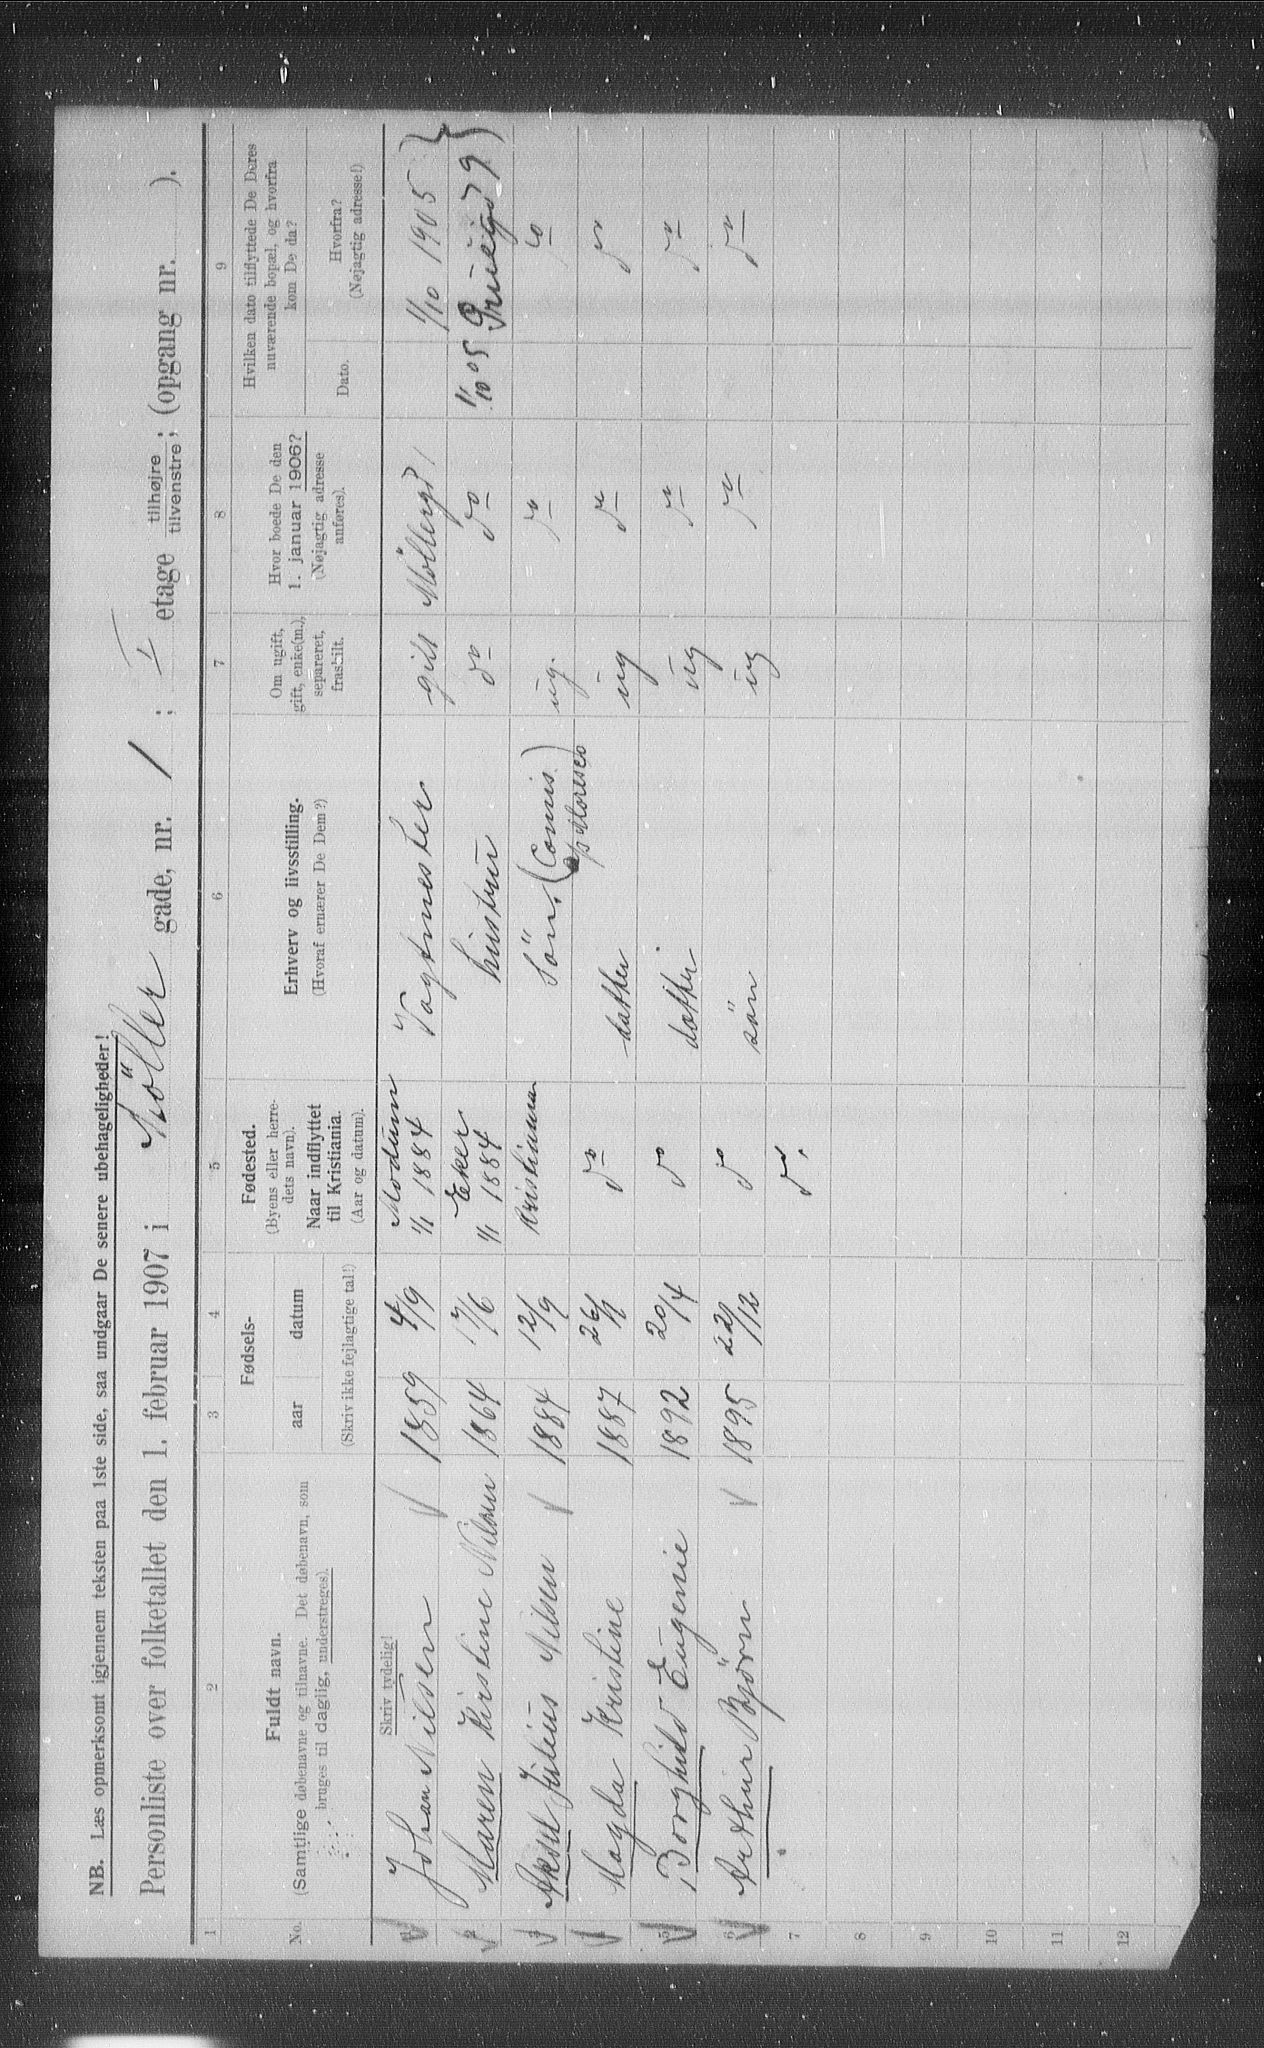 NB. Læs opmerksomt igjennem teksten paa 1ste side, saa undgaar De senere ubehageligheder!
Personliste over folketallet den 1. februar 1907 i Möller gade, nr. 1 ; I etage tilhøjre tilvenstre; (opgang nr. ).
1 2 3 4 5 6 7 8 9
No.
Fuldt navn.
(Samtlige døbenavne og tilnavne. Det døbenavn, som
bruges til daglig, understreges).
Skriv tydelig!
Fødsels-
aar datum
(Skriv ikke fejlagtige tal!)
Fødested.
(Byens eller herre-
dets navn).
Naar indflyttet
til Kristiania.
(Aar og datum).
Erhverv og livsstilling.
(Hvoraf ernærer De Dem?)
Om ugift,
gift, enke(m.),
separeret,
fraskilt.
Hvor boede De den
1. januar 1906?
(Nøjagtig adresse
anføres).
Hvilken dato tilflyttede De Deres
nuværende bopæl, og hvorfra
kom De da?
Dato.
Hvorfra?
(Nøjagtig adresse!)
1 Johan Nilsen 1859 4/9 Modum 1/1 1884 Vagtmester gift Möllergd 1 1/10 1905
2 Maren Kirstine Nilsen 1864 17/6 Eker 1/1 1884 hustru do do 1/10 05 9
3 Aksel Julius Nilsen 1884 12/9 Kristiania Sön. (Comis) ug. do do
4 Magda Kristine 1887 do datter ug do do
5 Borghild Eugenie 1892 20/4 do datter ug do do
6 Arthur Björn 1895 22/12 do sön ug do do
7 do.
8
9
10
11
12